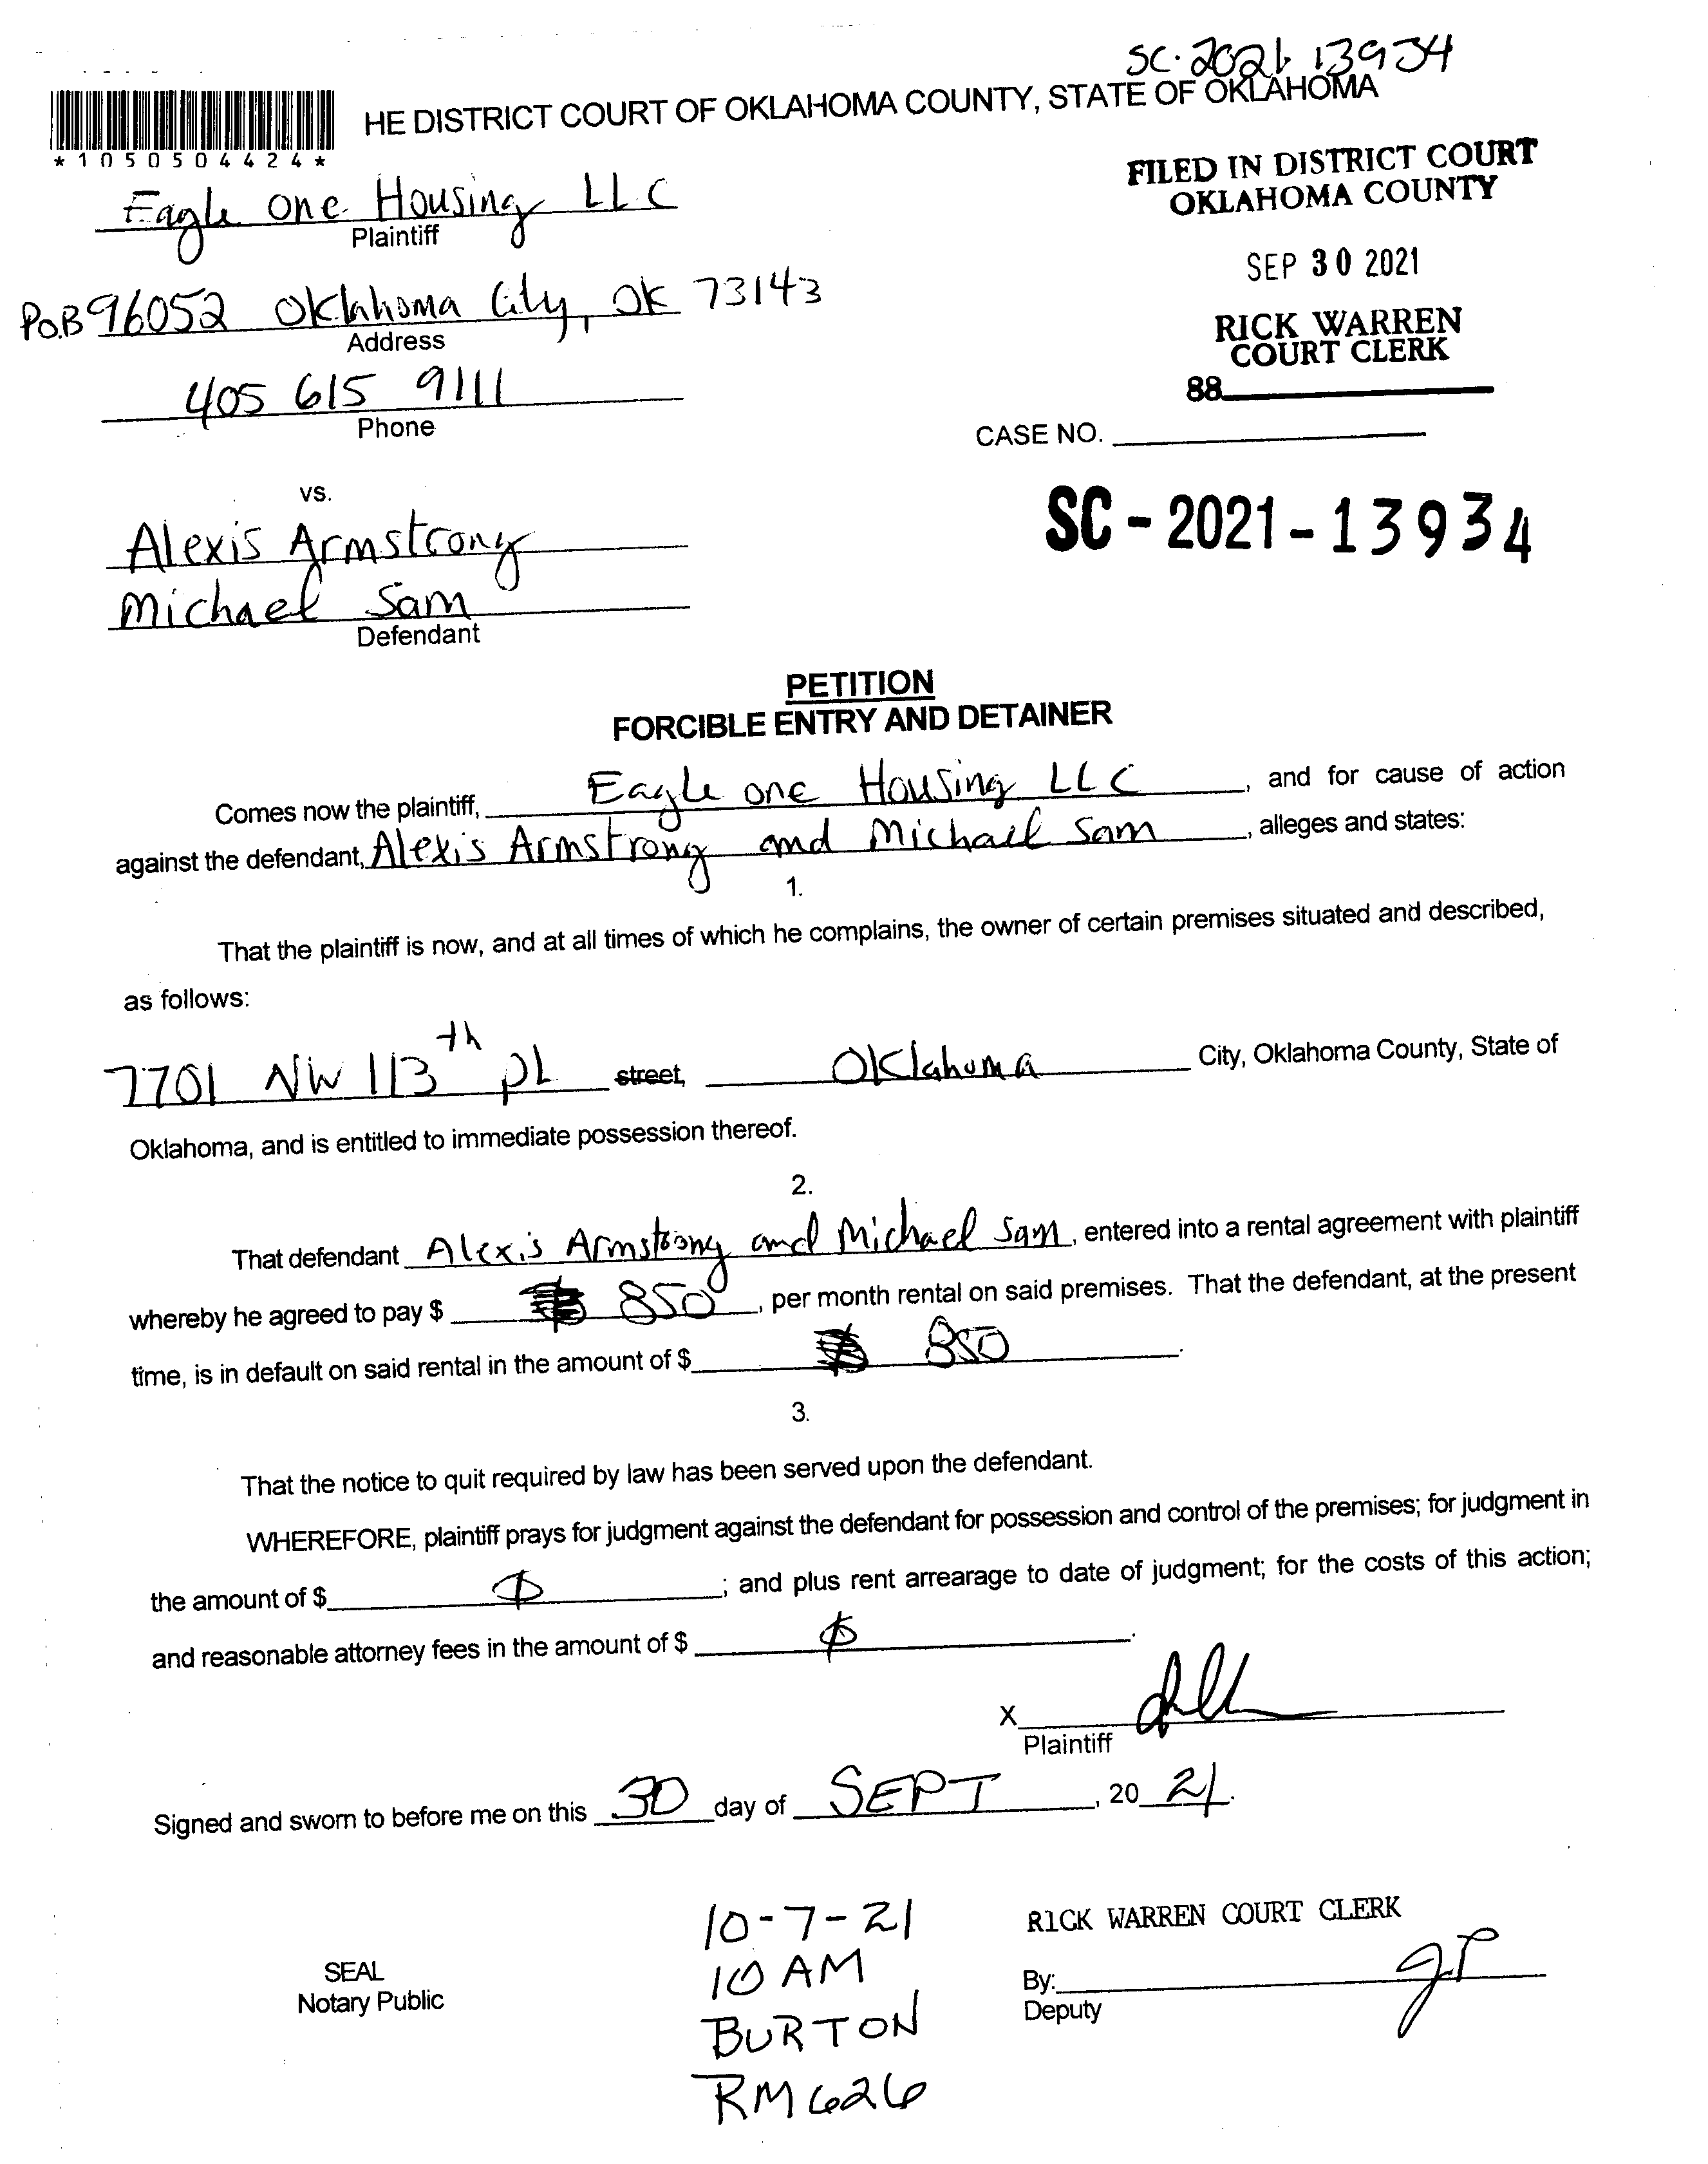 SC-2021-13934
HE DISTRICT COURT OF OKLAHOMA COUNTY, STATE OF OKLAHOMA
*1050504424*
FILED IN DISTRICT COURT
OKLAHOMA COUNTY
Eagle one Housing LLC
Plaintiff
SEP 30 2021
P.O.B 96052 Oklahoma City, OK 73143
Address
RICK WARREN
COURT CLERK
88
405 615 9111
Phone
CASE NO.
vs.
SC-2021-13934
Alexis Armstrong
Michael Sam
Defendant
PETITION
FORCIBLE ENTRY AND DETAINER
Comes now the plaintiff, Eagle one Housing LLC, and for cause of action
against the defendant, Alexis Armstrong and Michael Sam, alleges and states:
1.
That the plaintiff is now, and at all times of which he complains, the owner of certain premises situated and described,
as follows:
7701 NW 113th PL street, Oklahoma City, Oklahoma County, State of
Oklahoma, and is entitled to immediate possession thereof.
2.
That defendant Alexis Armstrong and Michael Sam, entered into a rental agreement with plaintiff
whereby he agreed to pay $ 850, per month rental on said premises. That the defendant, at the present
time, is in default on said rental in the amount of $ 850.
3.
That the notice to quit required by law has been served upon the defendant.
WHEREFORE, plaintiff prays for judgment against the defendant for possession and control of the premises; for judgment in
the amount of $ ; and plus rent arrearage to date of judgment; for the costs of this action;
and reasonable attorney fees in the amount of $ .
X
Plaintiff
Signed and sworn to before me on this 30 day of SEPT, 20 21.
10-7-21
10 AM
BURTON
RM 626
SEAL
Notary Public
RICK WARREN COURT CLERK
By:
Deputy